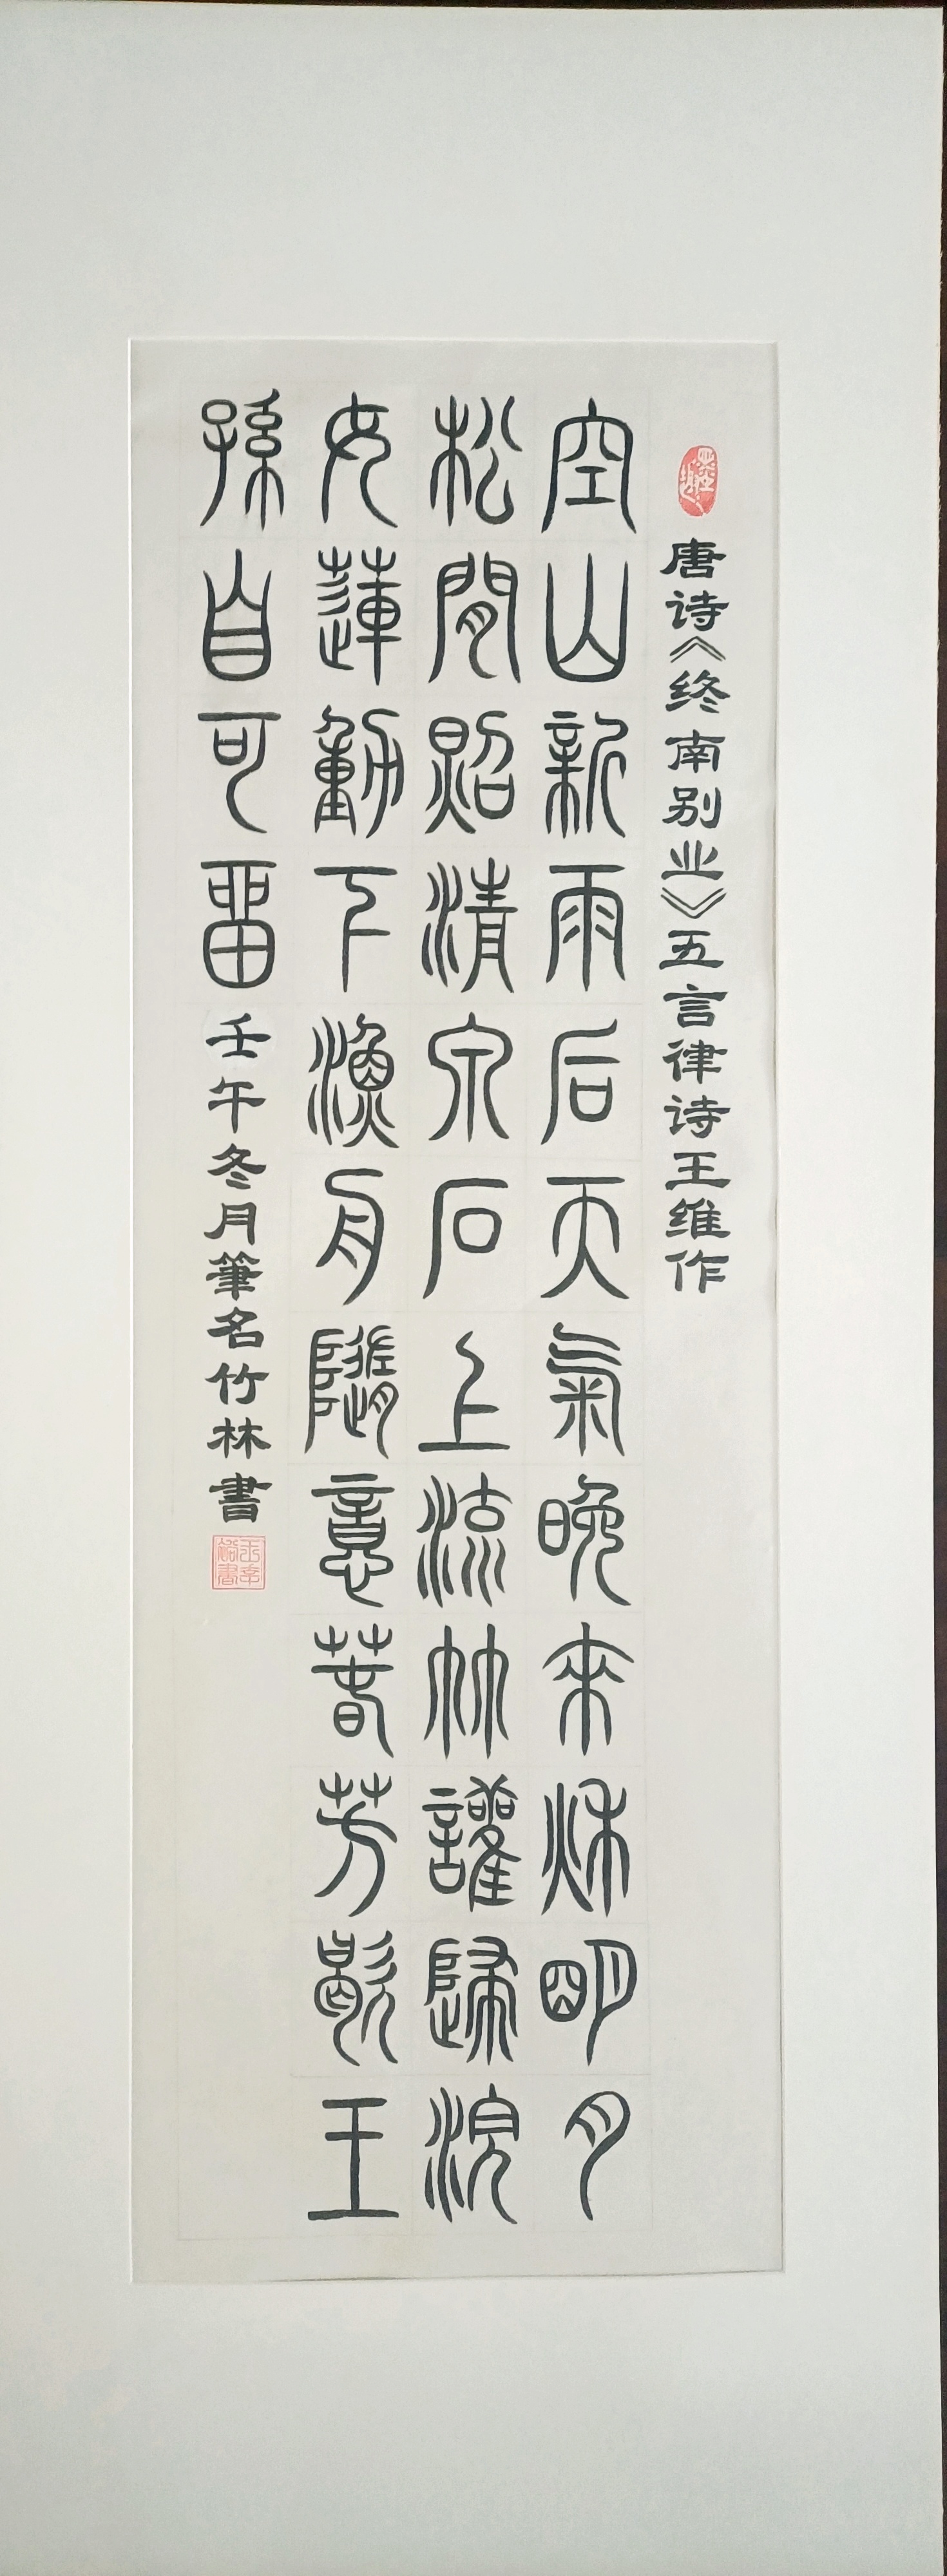 唐诗《终南别业》五言律诗王维作
空山新雨后天氣晚来秌明月
松間照清泉石上流竹諠歸浣
女蓮動下漁舟隨意萅芳歇王
孫自可畱壬午冬月筆名竹林書